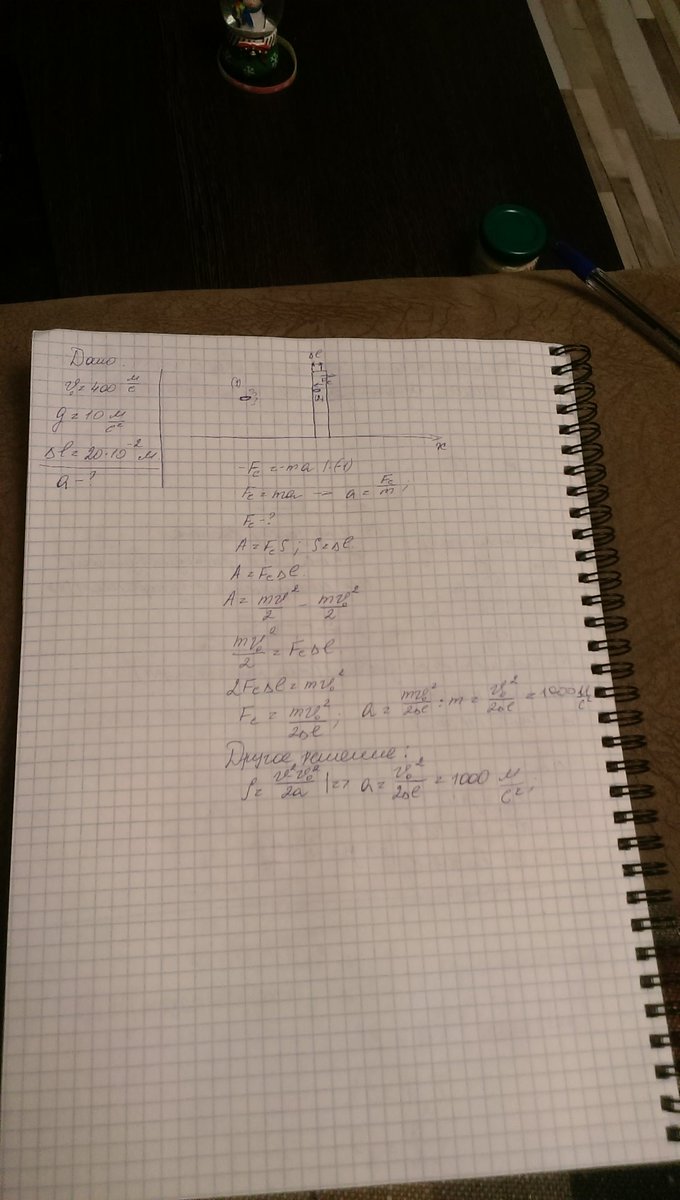 Дано:
v₀ = 400 м/с
g = 10 м/с²
Δl = 20·10⁻² м
a - ?
Δl
x
-Fc = -ma |·(-1)
Fc = ma — a = Fc/m ;
Fc - ?
A = FcS ; S = Δl
A = FcΔl.
A = mv²/2 - mv₀²/2
mv₀²/2 = FcΔl
2FcΔl = mv₀²
Fc = mv₀²/2Δl ; a = mv₀²/2Δl : m = v₀²/2Δl = 1000 м/с²
Другое решение:
S = v²v₀²/2a |=> a = v₀²/2Δl = 1000 м/с² ;